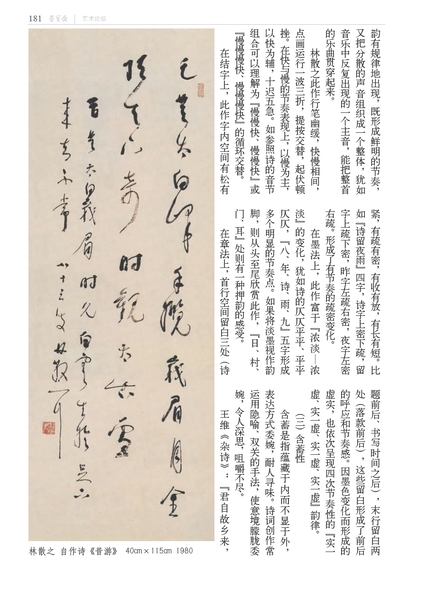 181 荣宝斋 | 艺术论坛
韵有规律地出现，既形成鲜明的节奏，
又把分散的声音组织成一个整体，犹如
音乐中反复出现的一个主音，能把整首
的乐曲贯穿起来。
林散之此作行笔幽缓，快慢相间，
点画运行一波三折，提按交替，起伏顿
挫。在快与慢的节奏表现上，以慢为主，
以快为辅，十迟五急。如参照诗的音节
组合可以理解为『慢慢快、慢慢快』或
『慢慢慢快、慢慢慢快』的循环交替。
在结字上，此作字内空间有松有
紧，有疏有密，有收有放，有长有短。比
如『诗留夜雨』四字，诗字上密下疏，留
字上疏下密，昨字左疏右密，夜字左密
右疏，形成了有节奏的疏密变化。
在墨法上，此作富于『浓淡—浓
淡』的变化，犹如诗的仄仄平平、平平
仄仄，『八、年、诗、雨、九』五字形成
多个明显的节奏点。如果将淡墨视作韵
脚，则从头至尾欣赏此作，『日、村、
门、耳』处则有一种押韵的感受。
在章法上，首行空间留白三处（诗
题前后、书写时间之后），末行留白两
处（落款前后），这些留白形成了前后
的呼应和节奏感。因墨色变化而形成的
虚实，也依次呈现四次节奏性的『实—
虚、实—虚、实—虚、实—虚』韵律。
（三）含蓄性
含蓄是指蕴藏于内而不显于外，
表达方式委婉，耐人寻味。诗词创作常
运用隐喻、双关的手法，使意境朦胧委
婉，令人深思、咀嚼不尽。
王维《杂诗》：『君自故乡来，
林散之 自作诗《昔游》 40cm×115cm 1980